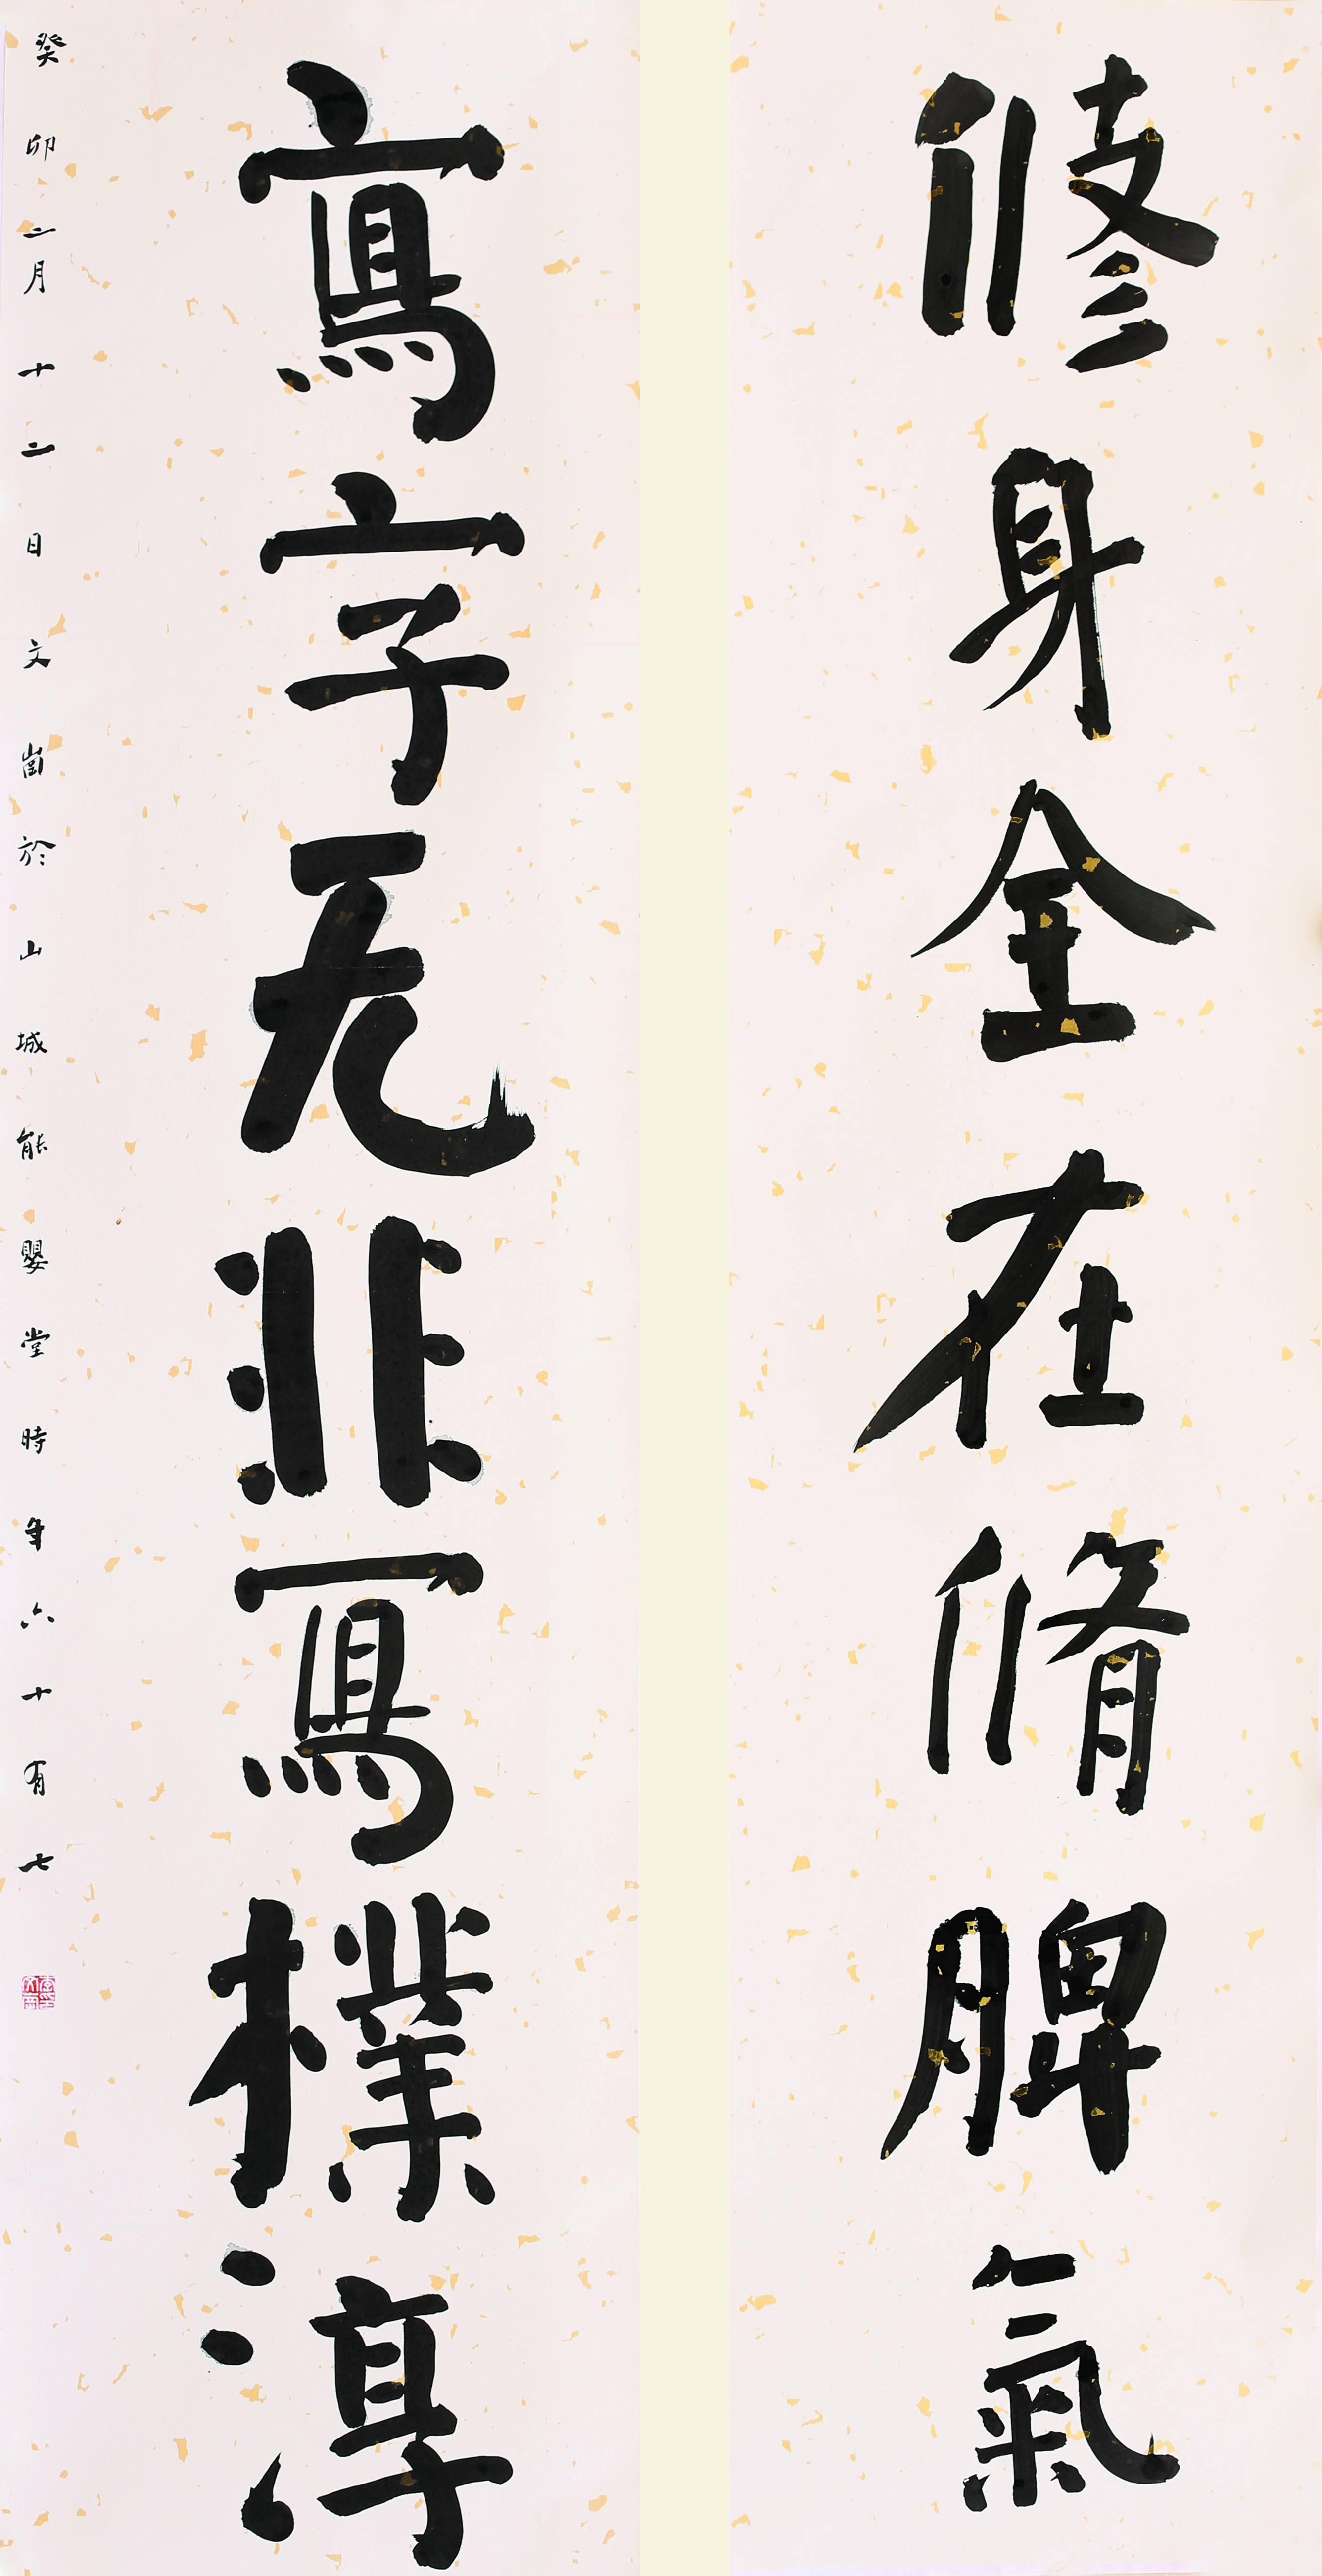 修身全在脩脾氣
寫字无非寫樸淳
癸卯二月十二日文崮於山城能嬰堂時年六十有七